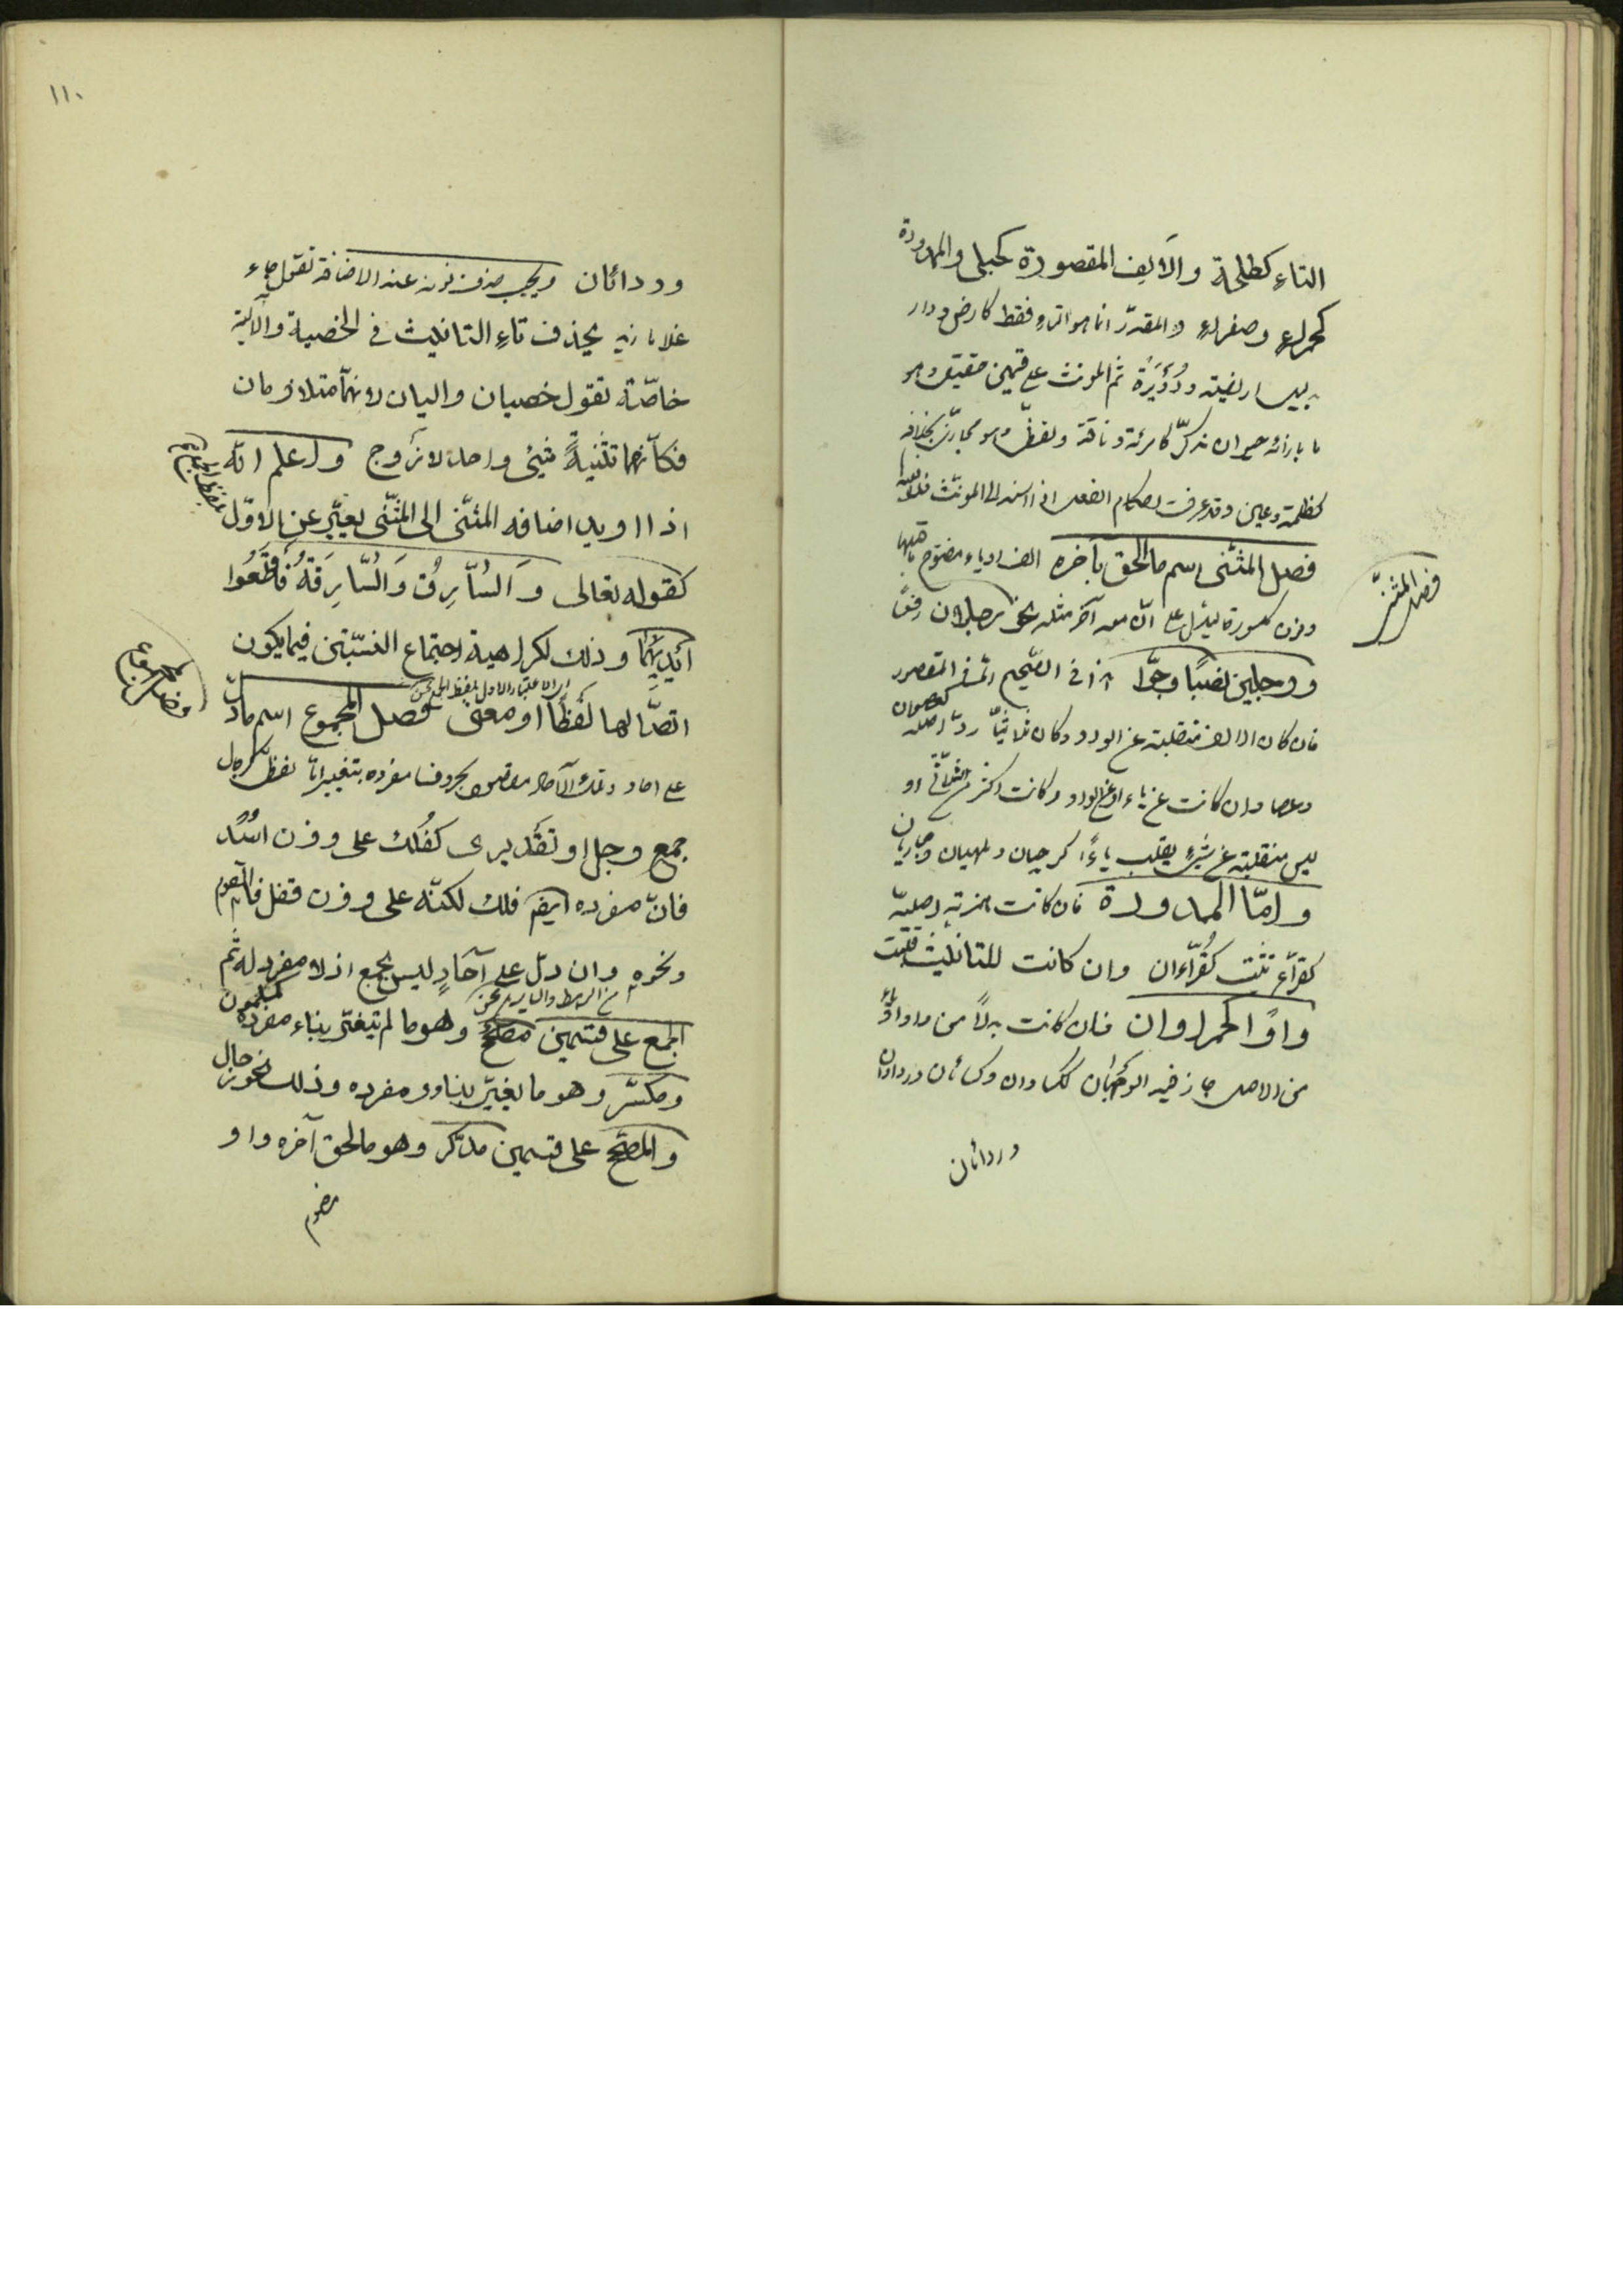 التاء كطلحة والالف المقصورة كحبلى والممدودة
كحمراء وصفراء والمقدّر انما هو التاء فقط كارض ودار
بدليل اريضة ودُوَيْرَة ثم المونث على قسمين حقيقي وهو
ما بازائه حيوان مذكّر كامرئة وناقة ولفظيّ وهو مجازيّ بخلافه
كظلمة وعين وقد عرفت احكام الفعل اذا اسند الى المونّث فلا نعيدها
فصل المثنّى اسم ما الحق بآخره الف او ياء مفتوح ما قبلها
ونون مكسورة ليدلّ على انّ معه آخر مثله نحو رجلان رفعًا
ورجلين نصبًا وجرّا هذا فى الصّحيح امّا فى المقصور
فان كان الالف منقلبة عن الواو وكان ثلاثيّا ردّ الى اصله كعصوان
وعصا وان كانت عن ياء او عن الواو وكانت اكثر من الثلاثى او
ليس منقلبة عن شيء يقلب ياءً كرحيان وملهيان وحباريان
وامّا الممدودة فان كانت همزته اصليّة
كقرّاء تثبت كقُرّاءان وان كانت للتانيث قلبت
واوًا كحمراوان فان كانت بدلاً من واو او ياء
من الاصل جاز فيه الوجهان ككساوان وكسائان ورداوان
وردائان
فصل المثنّى
١١٠
وردائان ويجب حذف نونه عند الاضافة تقول جاء
غلاما زيد يحذف تاء التانيث فى الخصية والالية
خاصّة تقول خصيان واليان لانهما متلازمان
فكأنهما تثنية شيئ واحد لا زوج واعلم انّه
اذا اريد اضافه المثنّى الى المثنّى يعبّر عن الاوّل
بلفظ الجمع
كقوله تعالى وَالسّاَرِقُ وَالسَّارِقَةُ فَاقْطَعُوا
اَيْدِيَهُمَا وذلك لكراهية اجتماع التثنيتين فيما يكون
اتصّالهما لفظًا او معنى فصل المجموع اسم ما دلّ
فصل المجموع
على احاد وتلك الآحاد مقصود بحروف مفرده بتغيير امّا لفظىّ كرجال
جمع رجل او تقديرى كفُلك على وزن اُسُد
فانّ مفرده ايضم فلك لكنّه على وزن قفل فالقوم
ونحوه وان دلّ على آحادٍ ليس بجمع اذ لا مفرد له ثم
الجمع على قسمين مصحّح وهو ما لم يتغيّر بناء مفرده كمسلمون
ومكسّر وهو ما يغيّر بناء مفرده وذلك نحو رجال
والمصحّح على قسمين مذكّر وهو ما لحق آخره واو
مضموم